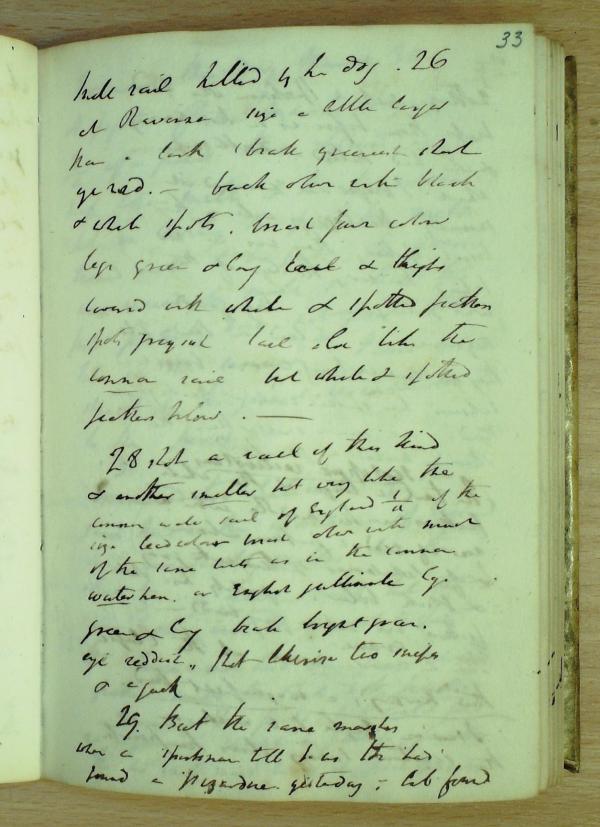 33
rail killed by the dog. 26
at Ravenna size a little larger
than a lark beak greenish short
eye red. — back olive with black
& white spots. breast fawn colour
legs green & long tail & thighs
covered with white & spotted feathers
spots greyish tail also like the
common rail but white & spotted
feathers below. —
28 shot a rail of this kind
& another smaller but very like the
common water rail of England of the
size lead colour breast olive with much
of the same tints as in the common
waterhen. or English gallinule legs
green & long beak bright green.
eye reddish, shot likewise two snipes
& a jack
29. Beat the same marshes
where a sportsman tell us that he had
found a yesterday; but found